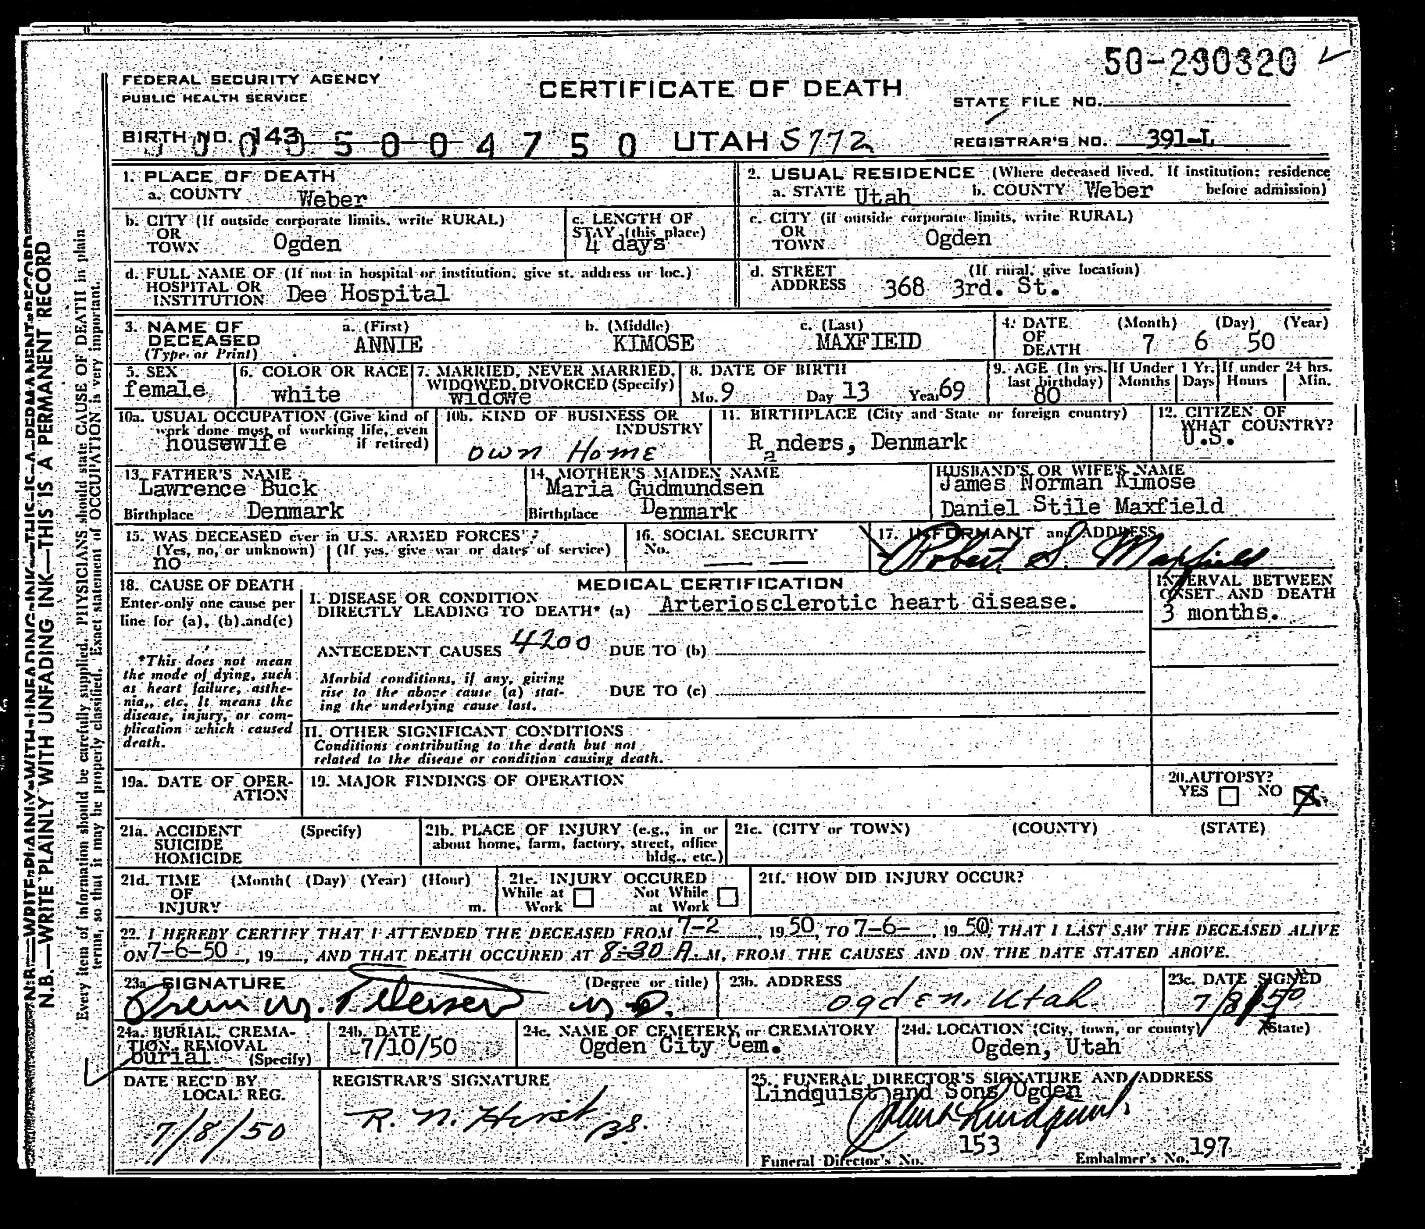 50-290320
FEDERAL SECURITY AGENCY
PUBLIC HEALTH SERVICE
CERTIFICATE OF DEATH
STATE FILE NO.
BIRTH NO. 143
005004750 UTAH 5772
REGISTRAR'S NO. 391-L
1. PLACE OF DEATH
a. COUNTY Weber
2. USUAL RESIDENCE (Where deceased lived. If institution: residence before admission)
a. STATE Utah b. COUNTY Weber
b. CITY (If outside corporate limits, write RURAL)
OR
TOWN Ogden
c. LENGTH OF
STAY (this place)
4 days
c. CITY (if outside corporate limits, write RURAL)
OR
TOWN Ogden
d. FULL NAME OF (If not in hospital or institution, give st. address or loc.)
HOSPITAL OR
INSTITUTION Dee Hospital
d. STREET (If rural, give location)
ADDRESS 368 3rd. St.
3. NAME OF
DECEASED
(Type or Print)
a. (First) b. (Middle) c. (Last)
ANNIE KIMOSE MAXFIEID
4. DATE (Month) (Day) (Year)
OF
DEATH 7 6 50
5. SEX
female
6. COLOR OR RACE
white
7. MARRIED, NEVER MARRIED,
WIDOWED, DIVORCED (Specify)
widowe
8. DATE OF BIRTH
Mo. 9 Day 13 Year 69
9. AGE (In yrs. last birthday)
80
If Under 1 Yr. If under 24 hrs.
Months Days Hours Min.
10a. USUAL OCCUPATION (Give kind of
work done most of working life, even
if retired)
housewife
10b. KIND OF BUSINESS OR
INDUSTRY
own Home
11. BIRTHPLACE (City and State or foreign country)
Randers, Denmark
12. CITIZEN OF
WHAT COUNTRY?
U.S.
13. FATHER'S NAME
Lawrence Buck
Birthplace Denmark
14. MOTHER'S MAIDEN NAME
Maria Gudmundsen
Birthplace Denmark
HUSBAND'S OR WIFE'S NAME
James Norman Kimose
Daniel Stile Maxfield
15. WAS DECEASED ever in U.S. ARMED FORCES?
(Yes, no, or unknown) (If yes, give war or dates of service)
no
16. SOCIAL SECURITY
No.
17. INFORMANT and ADDRESS
Robert S. Maxfield
18. CAUSE OF DEATH
Enter only one cause per
line for (a), (b) and (c)
*This does not mean
the mode of dying, such
as heart failure, asthe-
nia, etc. It means the
disease, injury, or com-
plication which caused
death.
MEDICAL CERTIFICATION
I. DISEASE OR CONDITION
DIRECTLY LEADING TO DEATH* (a) Arteriosclerotic heart disease.
ANTECEDENT CAUSES 4200 DUE TO (b)
Morbid conditions, if any, giving
rise to the above cause (a) stat-
ing the underlying cause last.
DUE TO (c)
II. OTHER SIGNIFICANT CONDITIONS
Conditions contributing to the death but not
related to the disease or condition causing death.
INTERVAL BETWEEN
ONSET AND DEATH
3 months.
19a. DATE OF OPER-
ATION
19. MAJOR FINDINGS OF OPERATION
20. AUTOPSY?
YES NO X
21a. ACCIDENT (Specify)
SUICIDE
HOMICIDE
21b. PLACE OF INJURY (e.g., in or
about home, farm, factory, street, office
bldg., etc.)
21c. (CITY or TOWN) (COUNTY) (STATE)
21d. TIME (Month( (Day) (Year) (Hour)
OF
INJURY m.
21e. INJURY OCCURED
While at Work Not While at Work
21f. HOW DID INJURY OCCUR?
22. I HEREBY CERTIFY THAT I ATTENDED THE DECEASED FROM 7-2, 19 50, TO 7-6-, 19 50, THAT I LAST SAW THE DECEASED ALIVE
ON 7-6-50, 19__, AND THAT DEATH OCCURED AT 8-30 A.M, FROM THE CAUSES AND ON THE DATE STATED ABOVE.
23a. SIGNATURE (Degree or title)
M. Petersen M.D.
23b. ADDRESS
Ogden, Utah
23c. DATE SIGNED
7/8/50
24a. BURIAL, CREMA-
TION, REMOVAL
(Specify)
burial
24b. DATE
7/10/50
24c. NAME OF CEMETERY or CREMATORY
Ogden City Cem.
24d. LOCATION (City, town, or county) (State)
Ogden, Utah
DATE REC'D BY
LOCAL REG.
7/8/50
REGISTRAR'S SIGNATURE
R. N. Hirst
25. FUNERAL DIRECTOR'S SIGNATURE AND ADDRESS
Lindquist and Sons Ogden
Lindquist
Funeral Director's No. 153 Embalmer's No. 197
N.B.—WRITE PLAINLY WITH UNFADING INK—THIS IS A PERMANENT RECORD
Every item of information should be carefully supplied. PHYSICIANS should state CAUSE OF DEATH in plain
terms, so that it may be properly classified. Exact statement of OCCUPATION is very important.